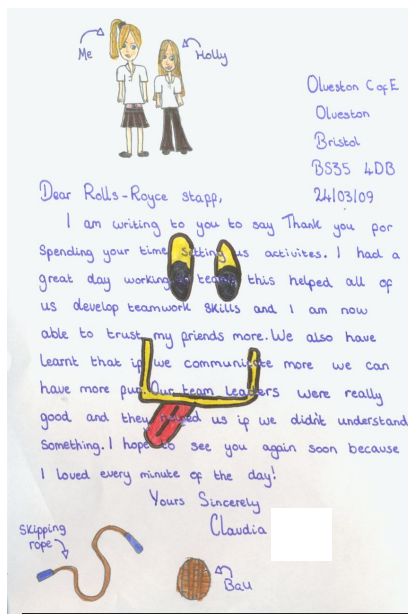 Me
Holly
Olveston C of E
Olveston
Bristol
BS35 4DB
24/03/09
Dear Rolls-Royce staff,
I am writing to you to say Thank you for
spending your time setting us activites. I had a
great day working in teams this helped all of
us develop teamwork skills and I am now
able to trust my friends more. We also have
learnt that if we communicate more we can
have more fun. Our team leaders were really
good and they helped us if we didn't understand
something. I hope to see you again soon because
I loved every minute of the day!
Yours Sincerely
Claudia
Skipping
rope
Ball